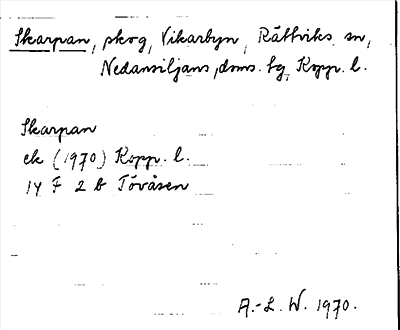 Skarpan, skog, Vikarbyn, Rättviks sn,
Nedansiljans doms. tg, Kopp. l.
Skarpan
ek (1970) Kopp. l.
14 F 2 b Tövåsen
A.-L. W. 1970.